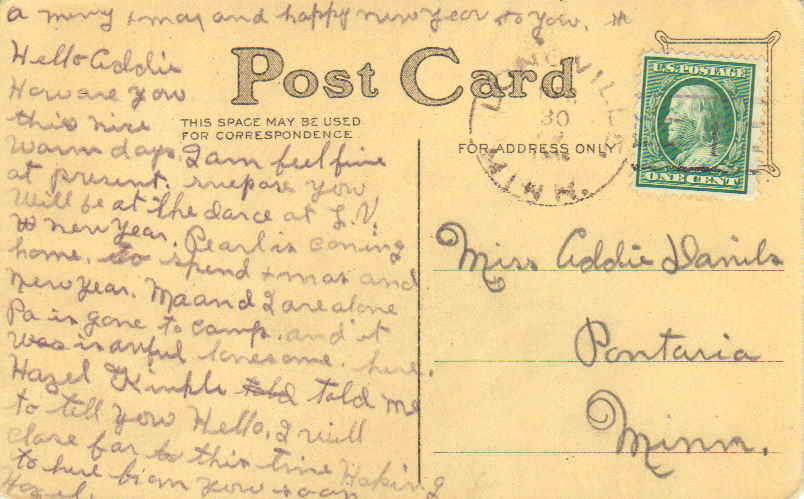 a mery xmas and happy new year to you.
Hello Addie
How are you
this nice
warm days, I am feel fine
at present. supose you
will be at the dance at L.V.
new year. Pearl is coming
home. to spend xmas and
new year. Ma and I are alone
Pa is gone to camp. and it
was is awful lonesome. here.
Hazel told told me
to tell you Hello. I will
close for to this time Hoping
to here from you soon
Hazel.
Post Card
THIS SPACE MAY BE USED
FOR CORRESPONDENCE
FOR ADDRESS ONLY
LONGVILLE
30
MINN.
U.S. POSTAGE
ONE CENT
Miss Addie Danils
Pontoria
Minn.